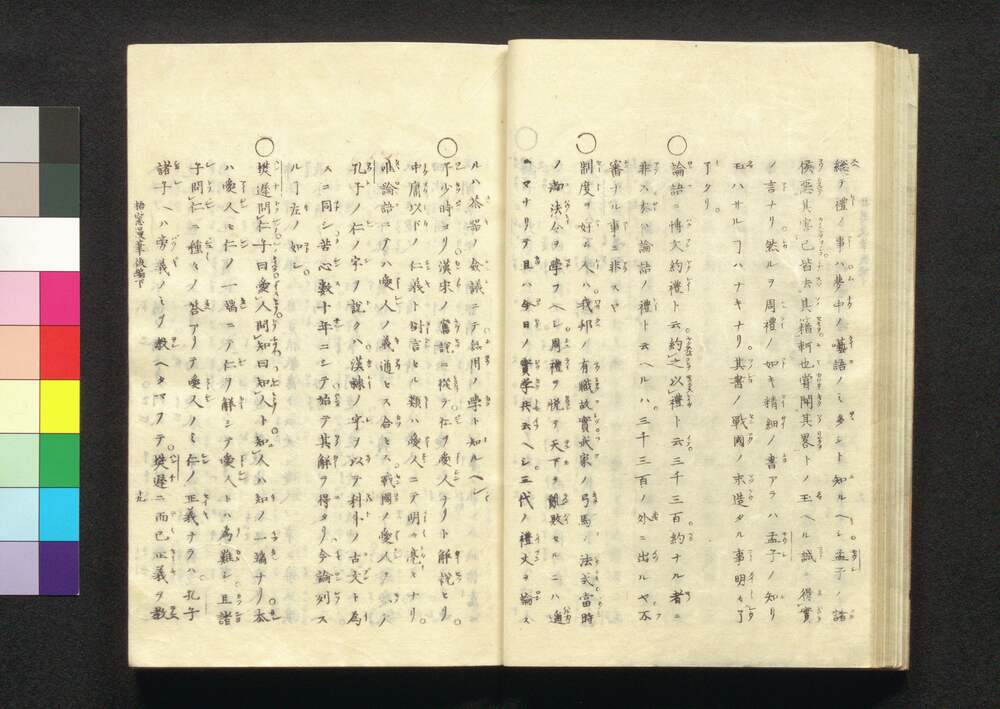 総テ禮ノ事ハ夢中ノ囈語ノミ多シト知ルヘシ孟子ノ諸
侯惡其害已皆去其籍軻也嘗聞其畧トノ玉ヘル誠ニ得實
ノ言ナリ然ルヲ周禮ノ如キ精細ノ書アラハ孟子ノ知リ
玉ハサルヿハナキナリ其書ノ戰國ノ末造タル事明々了
了タリ
○論語ニ博文約禮ト云約之以禮ト云三千三百約ナル者ニ
非ス然ハ論語ノ禮ト云ヘルハ三千三百ノ外ニ出ルヤ不
審ナル事ニ非スヤ
○制度ヲ好ム人ハ我邦ノ有職故實武家ノ弓馬ノ法式當時
ノ御法令ヲ學フヘシ周禮ヲ脱テ天下ヲ離敗セルニハ遥
マサリテ且ハ今日ノ實学共云ヘシ三代ノ禮文ヲ論ス
ルハ茶器ノ僉議ニテ無用ノ學ト知ルヘシ
○予少時ヨリ漢宋ノ舊説ニ從テ仁ヲ愛人ナリト解説セリ
中庸以下ノ仁義ト對言セル類ハ愛人ニテ明々亮々ナリ
唯論語ニテハ愛人ノ義通セス合セス戰國ノ愛人ニテハ
孔子ノ仁ノ字ヲ説クハ漢隷ノ字ヲ以テ科斗ノ古文ト為
スニ同シ苦心數十年ニシテ始テ其解ヲ得タリ今論列ス
ルヿ左ノ如シ
○樊遲問仁子曰愛人問知曰知人ト知人ハ知ノ一端ナリ本
ハ愛人モ仁ノ一端ニテ仁ヲ解シテ愛人トハ為難シ且諸
子問仁ニ種々ノ答アリテ愛人ノミ仁ノ正義ナラハ孔子
諸子ヘハ旁義ノミヲ教ヘタマフテ樊遲ニ而已正義ヲ教
梧窓漫筆後編下